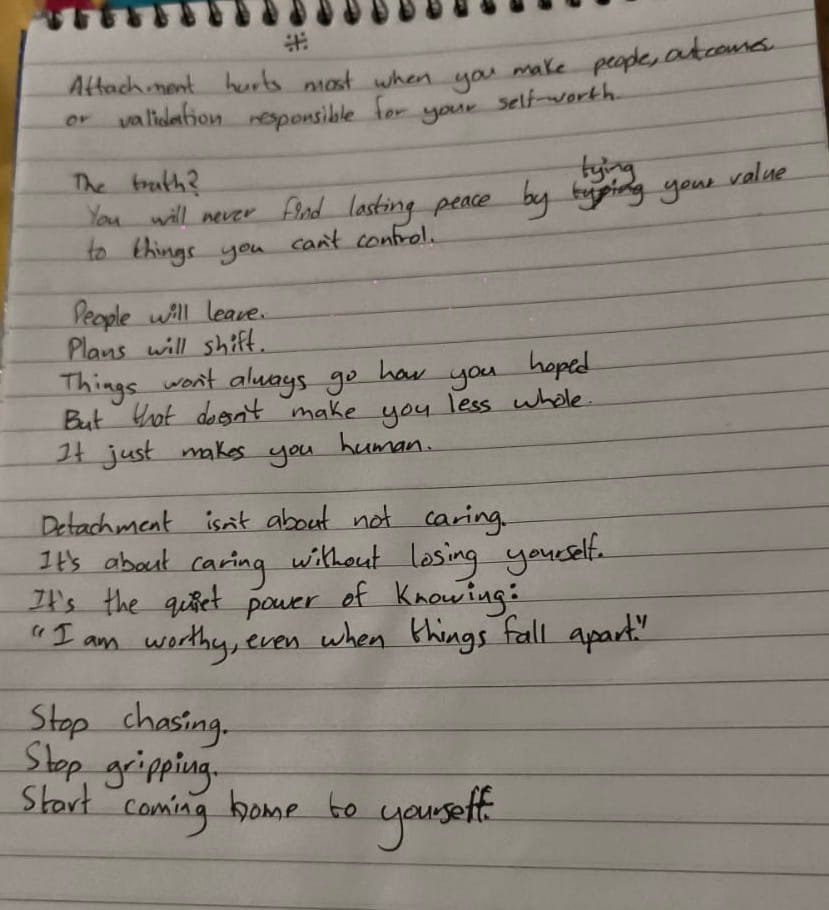 Attachment hurts most when you make people, outcomes
or validation responsible for your self-worth.
The truth?
tying
You will never find lasting peace by typing your value
to things you can't control.
People will leave.
Plans will shift.
Things won't always go how you hoped
But that doesn't make you less whole.
It just makes you human.
Detachment isn't about not caring.
It's about caring without losing yourself.
It's the quiet power of knowing:
"I am worthy, even when things fall apart."
Stop chasing.
Stop gripping.
Start coming home to yourself.